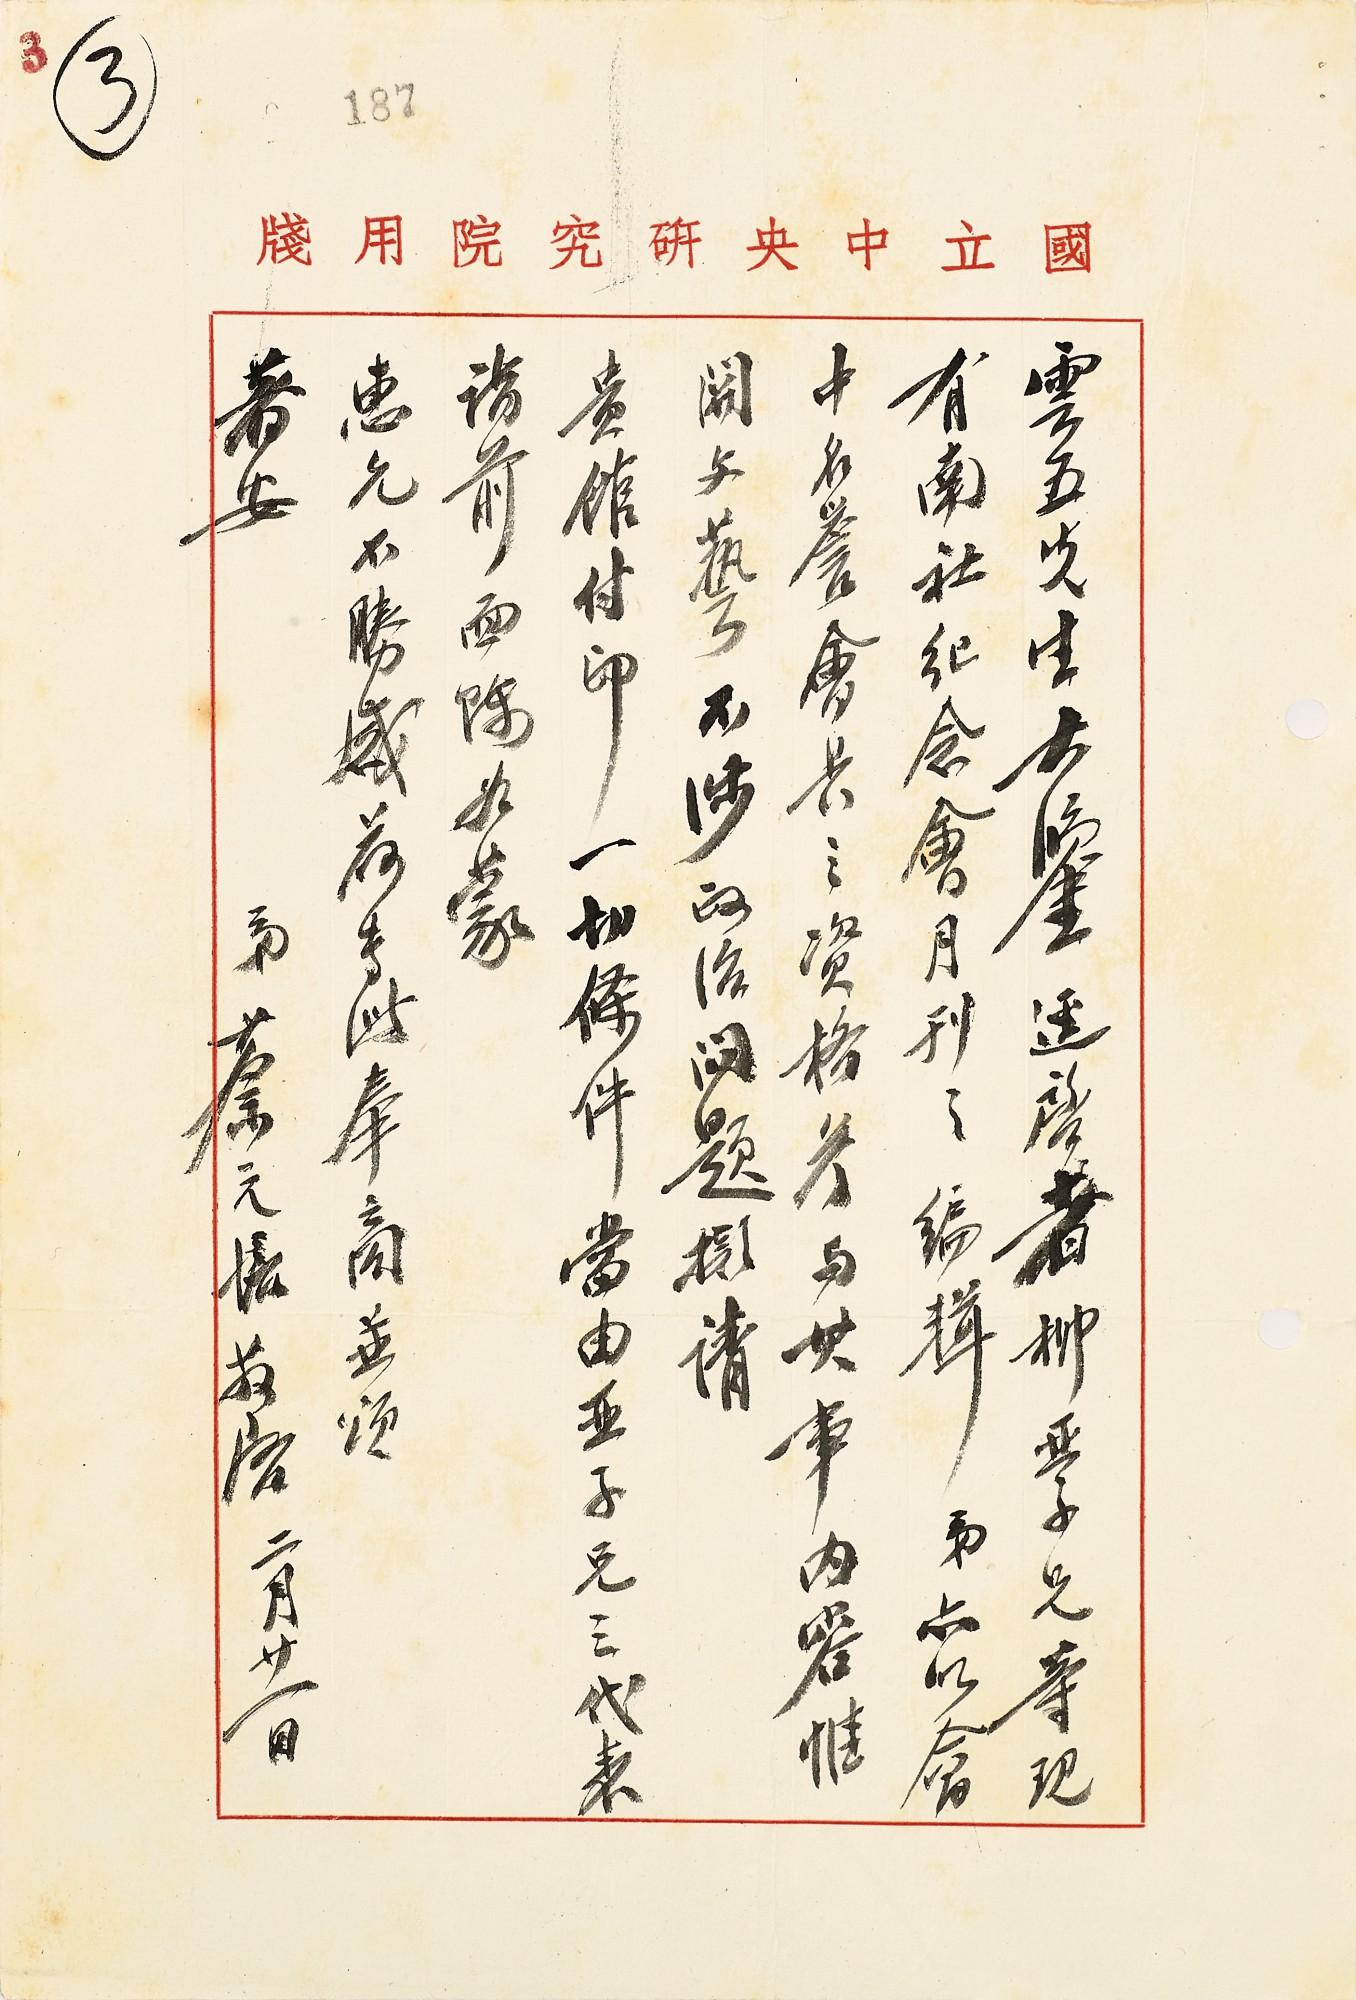 3
3
187
國立中央研究院用牋
雲五先生大鑒逕啓者柳亞子兄等現
有南社紀念會月刊之編輯弟亦以會
中名譽會長之資格參與其事内容惟
關文藝不涉政治問題擬請
貴館付印一切條件當由亞子兄之代表
詣前面陳如蒙
惠允不勝感荷專此奉商並頌
著安
弟蔡元培敬啓二月廿一日